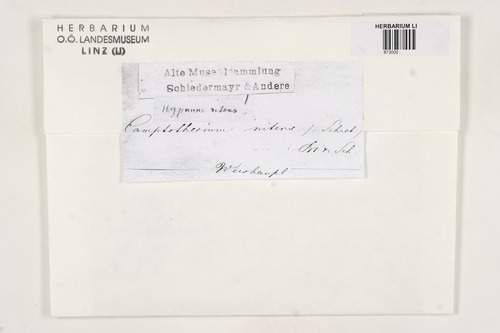 HERBARIUM
O.Ö. LANDESMUSEUM
LINZ (LI)
HERBARIUM LI
Alte Musealsammlung
Schiedermayr & Andere
Hypnum nitens
Camptothecium nitens (Schreb)
Sch.